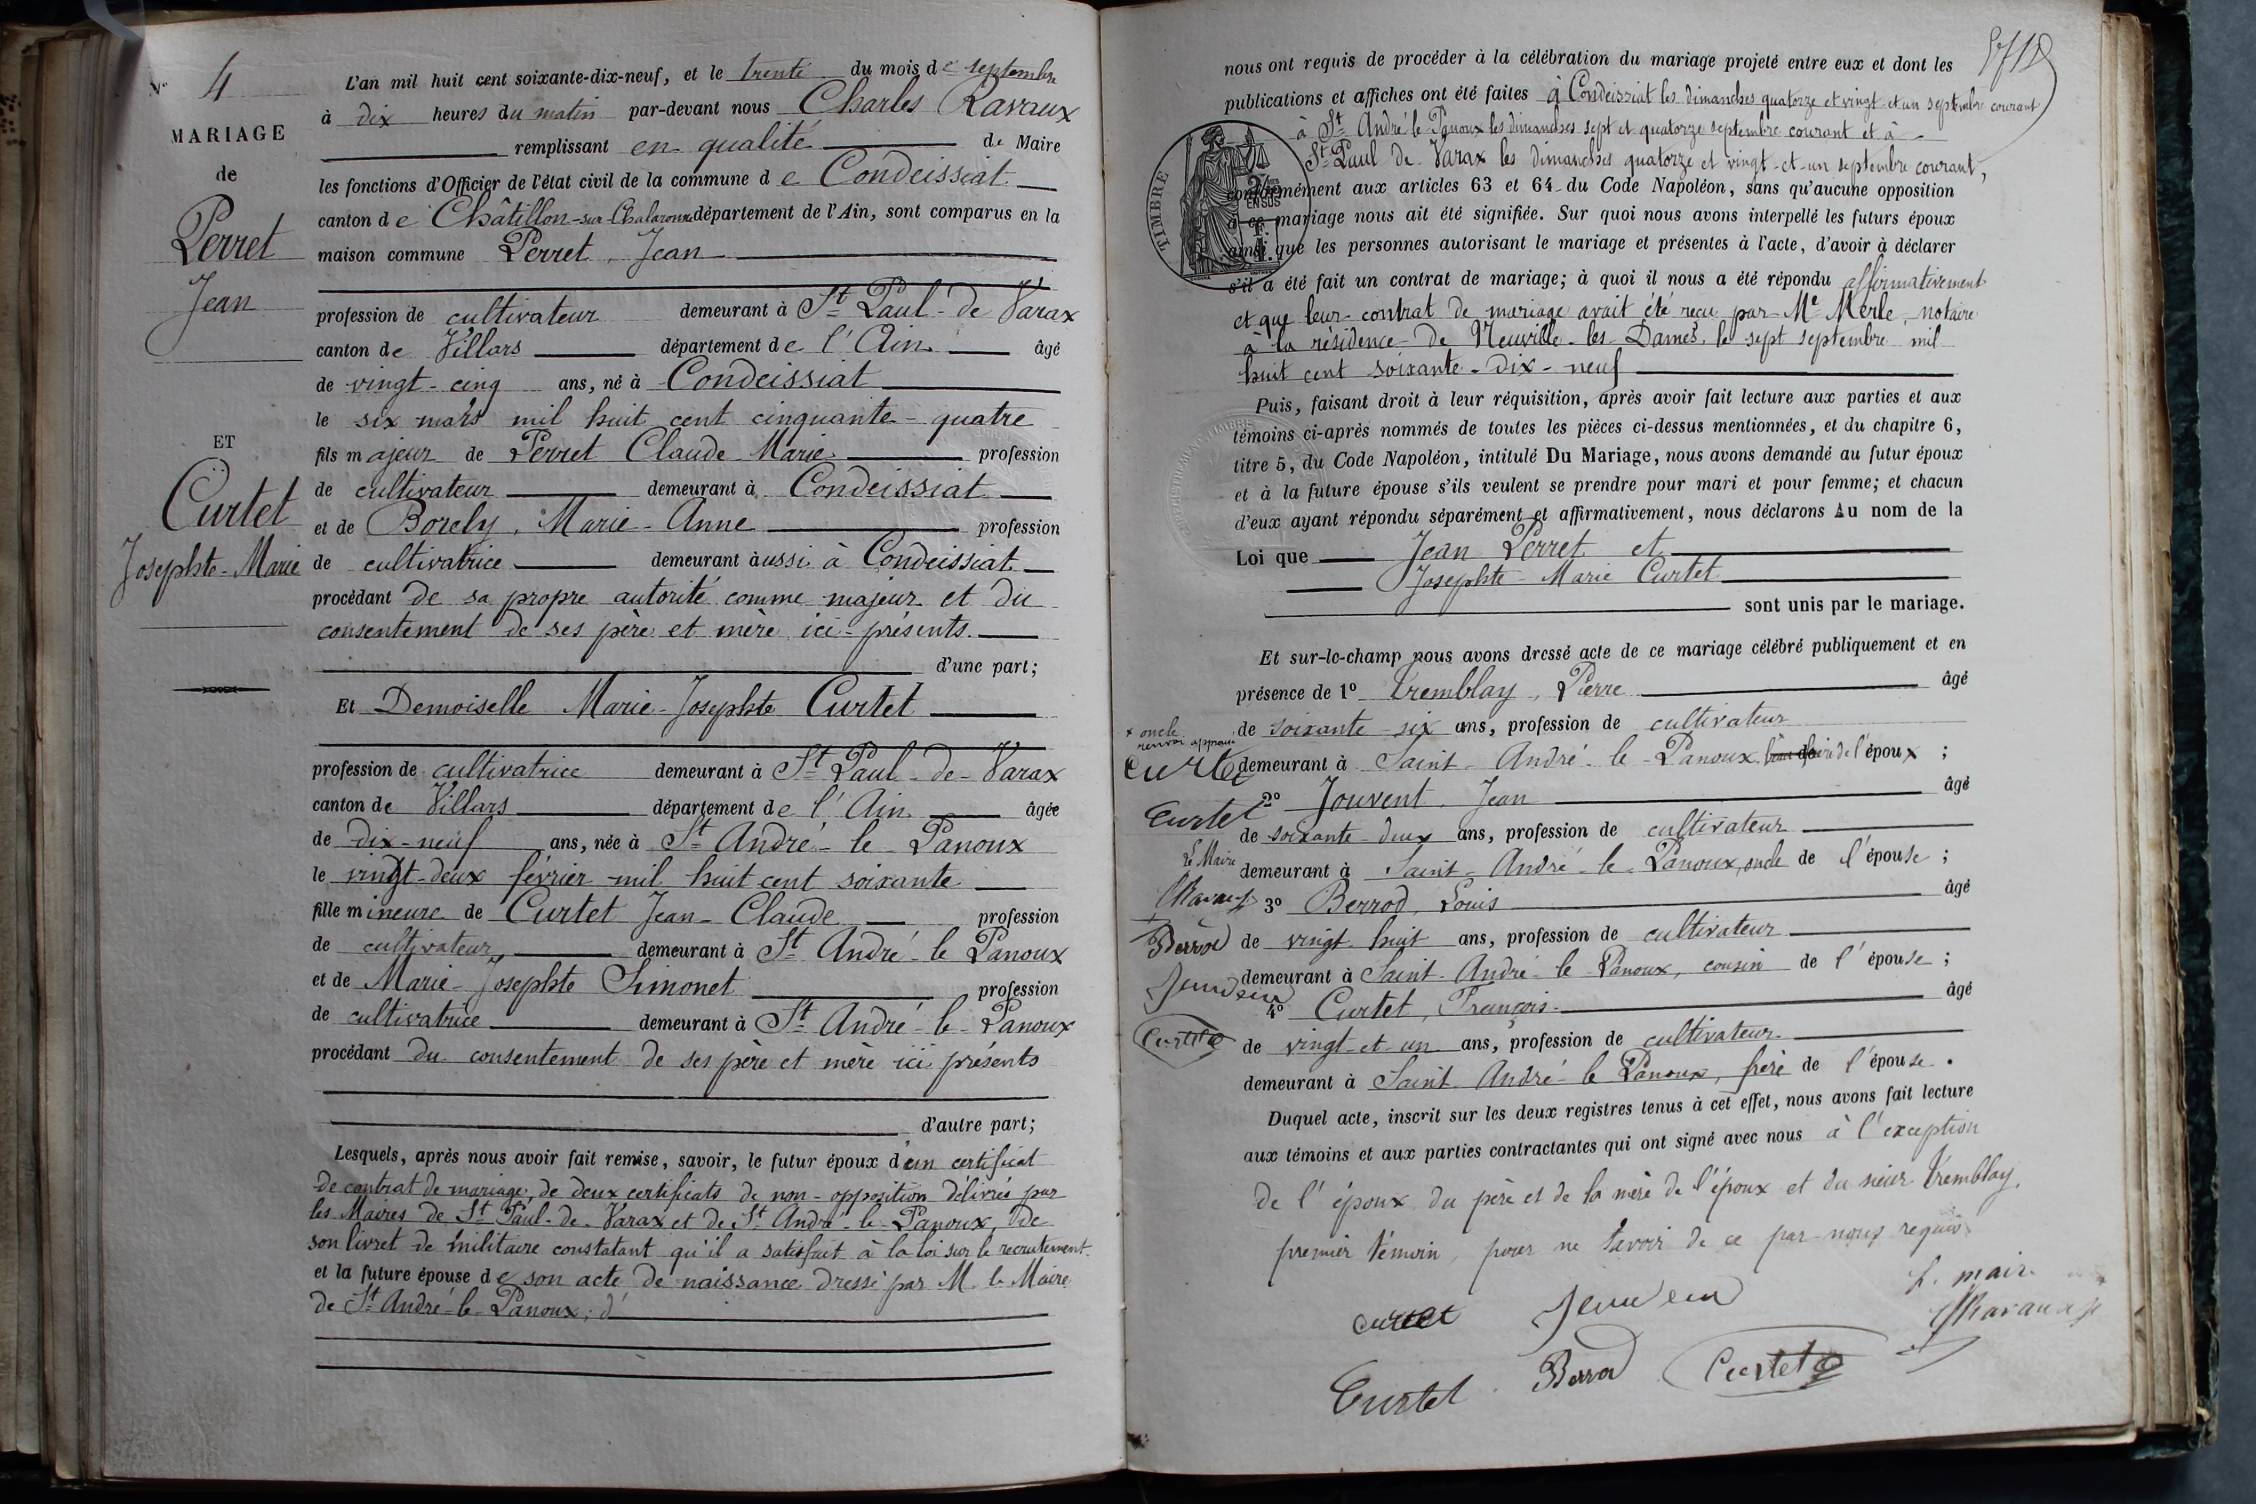 N° 4
MARIAGE
de
Perret
Jean
ET
Curtet
Josephte-Marie
L'an mil huit cent soixante-dix-neuf, et le trente du mois de septembre
à dix heures du matin par-devant nous Charles Ravaux
remplissant en qualité de Maire
les fonctions d'Officier de l'état civil de la commune de Condeissiat
canton de Châtillon-sur-Chalaronne département de l'Ain, sont comparus en la
maison commune Perret, Jean
profession de cultivateur demeurant à St Paul-de Varax
canton de Villars département de l'Ain âgé
de vingt-cinq ans, né à Condeissiat
le six mars mil huit cent cinquante-quatre
fils majeur de Perret Claude Marie profession
de cultivateur demeurant à Condeissiat
et de Borely, Marie-Anne profession
de cultivatrice demeurant aussi à Condeissiat
procédant de sa propre autorité comme majeur et du
consentement de ses père et mère ici-présents.
d'une part;
Et Demoiselle Marie-Josephte Curtet
profession de cultivatrice demeurant à St Paul-de-Varax
canton de Villars département de l'Ain âgée
de dix-neuf ans, née à St André-le-Panoux
le vingt-deux février mil huit cent soixante
fille mineure de Curtet Jean-Claude profession
de cultivateur demeurant à St André-le Panoux
et de Marie-Josephte Simonet profession
de cultivatrice demeurant à St André-le-Panoux
procédant du consentement de ses père et mère ici présents
d'autre part;
Lesquels, après nous avoir fait remise, savoir, le futur époux d'un certificat
de contrat de mariage, de deux certificats de non-opposition délivrés par
les Maires de St Paul-de-Varax et de St André-le-Panoux, de
son livret de militaire constatant qu'il a satisfait à la loi sur le recrutement.
et la future épouse de son acte de naissance dressé par M. le Maire
de St André-le-Panoux; d'
nous ont requis de procéder à la célébration du mariage projeté entre eux et dont les
publications et affiches ont été faites à Condeissiat les dimanches quatorze et vingt-et-un septembre courant
à St André-le Panoux les dimanches sept et quatorze septembre courant et à
St Paul de Varax les dimanches quatorze et vingt-et-un septembre courant,
TIMBRE
2/10mes EN SUS
conformément aux articles 63 et 64 du Code Napoléon, sans qu'aucune opposition
à ce mariage nous ait été signifiée. Sur quoi nous avons interpellé les futurs époux
ainsi que les personnes autorisant le mariage et présentes à l'acte, d'avoir à déclarer
s'il a été fait un contrat de mariage; à quoi il nous a été répondu affirmativement
et que leur contrat de mariage avait été reçu par Me Merle, notaire
à la résidence de Neuville-les-Dames, le sept septembre mil
huit cent soixante-dix-neuf
Puis, faisant droit à leur réquisition, après avoir fait lecture aux parties et aux
témoins ci-après nommés de toutes les pièces ci-dessus mentionnées, et du chapitre 6,
titre 5, du Code Napoléon, intitulé Du Mariage, nous avons demandé au futur époux
et à la future épouse s'ils veulent se prendre pour mari et pour femme; et chacun
d'eux ayant répondu séparément et affirmativement, nous déclarons Au nom de la
Loi que Jean Perret et
Josephte-Marie Curtet
sont unis par le mariage.
Et sur-le-champ nous avons dressé acte de ce mariage célébré publiquement et en
présence de 1° Tremblay, Pierre âgé
de soixante-six ans, profession de cultivateur
demeurant à Saint-André-le-Panoux de l'époux;
2° Jouvent, Jean âgé
de soixante-deux ans, profession de cultivateur
demeurant à Saint-André-le-Panoux, oncle de l'épouse;
3° Berrod, Louis âgé
de vingt huit ans, profession de cultivateur
demeurant à Saint-André-le-Panoux, cousin de l'épouse;
4° Curtet, François âgé
de vingt-et-un ans, profession de cultivateur
demeurant à Saint-André-le Panoux, frère de l'épouse.
Duquel acte, inscrit sur les deux registres tenus à cet effet, nous avons fait lecture
aux témoins et aux parties contractantes qui ont signé avec nous à l'exception
de l'époux du père et de la mère de l'époux et du sieur Tremblay,
premier témoin, pour ne savoir de ce par nous requis
x oncle
renvoi approuvé
Curtet
Curtet
Le Maire
Ravaux
Berrod
Curtet
Curtet
Le maire
Ravaux
Curtet
Berrod
Curtet